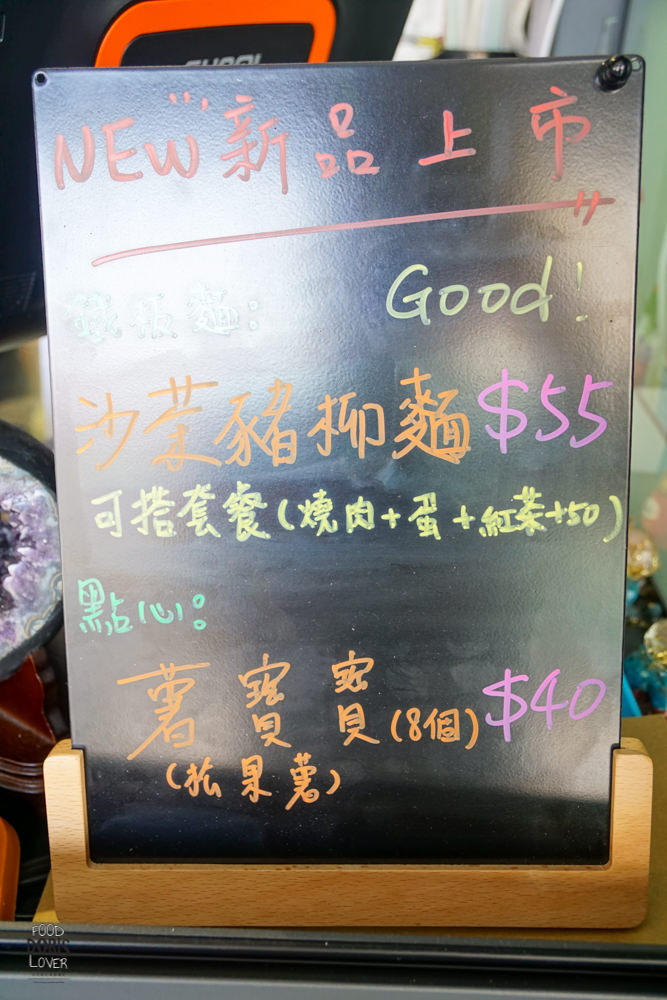 NEW新品上市
Good!
鐵板麵:
沙茶豬柳麵$55
可搭套餐(燒肉+蛋+紅茶+50)
點心:
薯寶寶(8個)$40
(松果薯)
FOOD
DORIS
LOVER